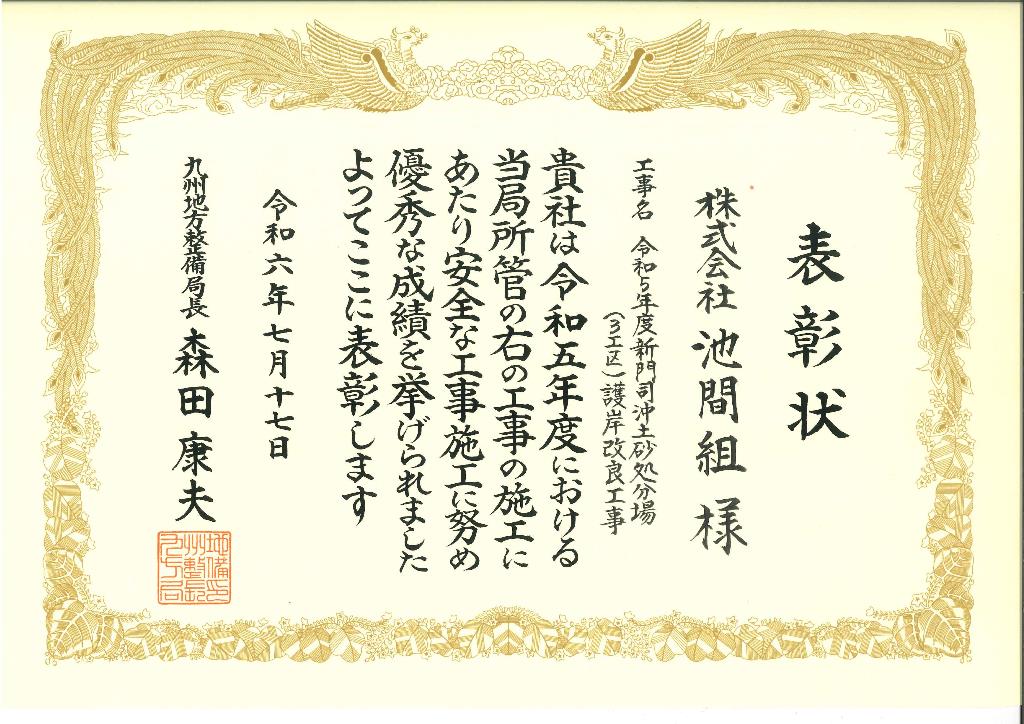 表彰状
株式会社 池間組 様
工事名 令和5年度新門司沖土砂処分場
(3工区)護岸改良工事
貴社は令和五年度における
当局所管の右の工事の施工に
あたり安全な工事施工に努め
優秀な成績を挙げられました
よってここに表彰します
令和六年七月十七日
九州地方整備局長 森田康夫